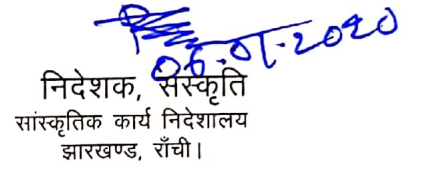 06.01.2020
निदेशक, संस्कृति
सांस्कृतिक कार्य निदेशालय
झारखण्ड, राँची।